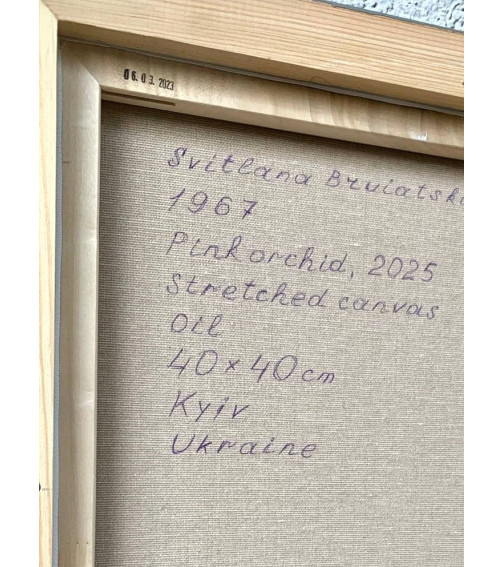 06.03.2023
Svitlana
1967
Pink orchid, 2025
Stretched canvas
Oil
40×40 cm
Kyiv
Ukraine